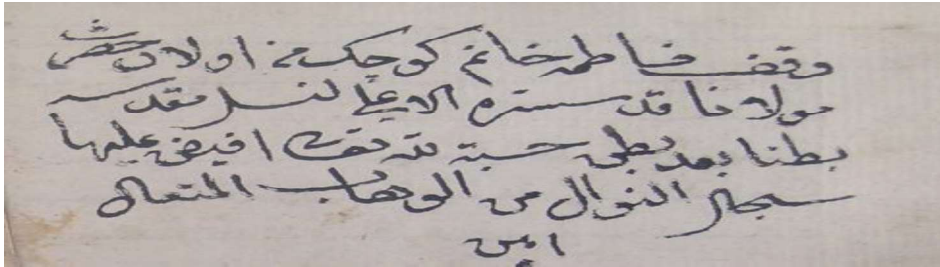 وقف فاطمه خانم كوجك من اولاد حضرت
مولانا قدس سره الاعلى لنسل
بطنا بعد بطن حسبة لله تعالى افيض عليها
سجال النوال من الوهاب المتعال
امين